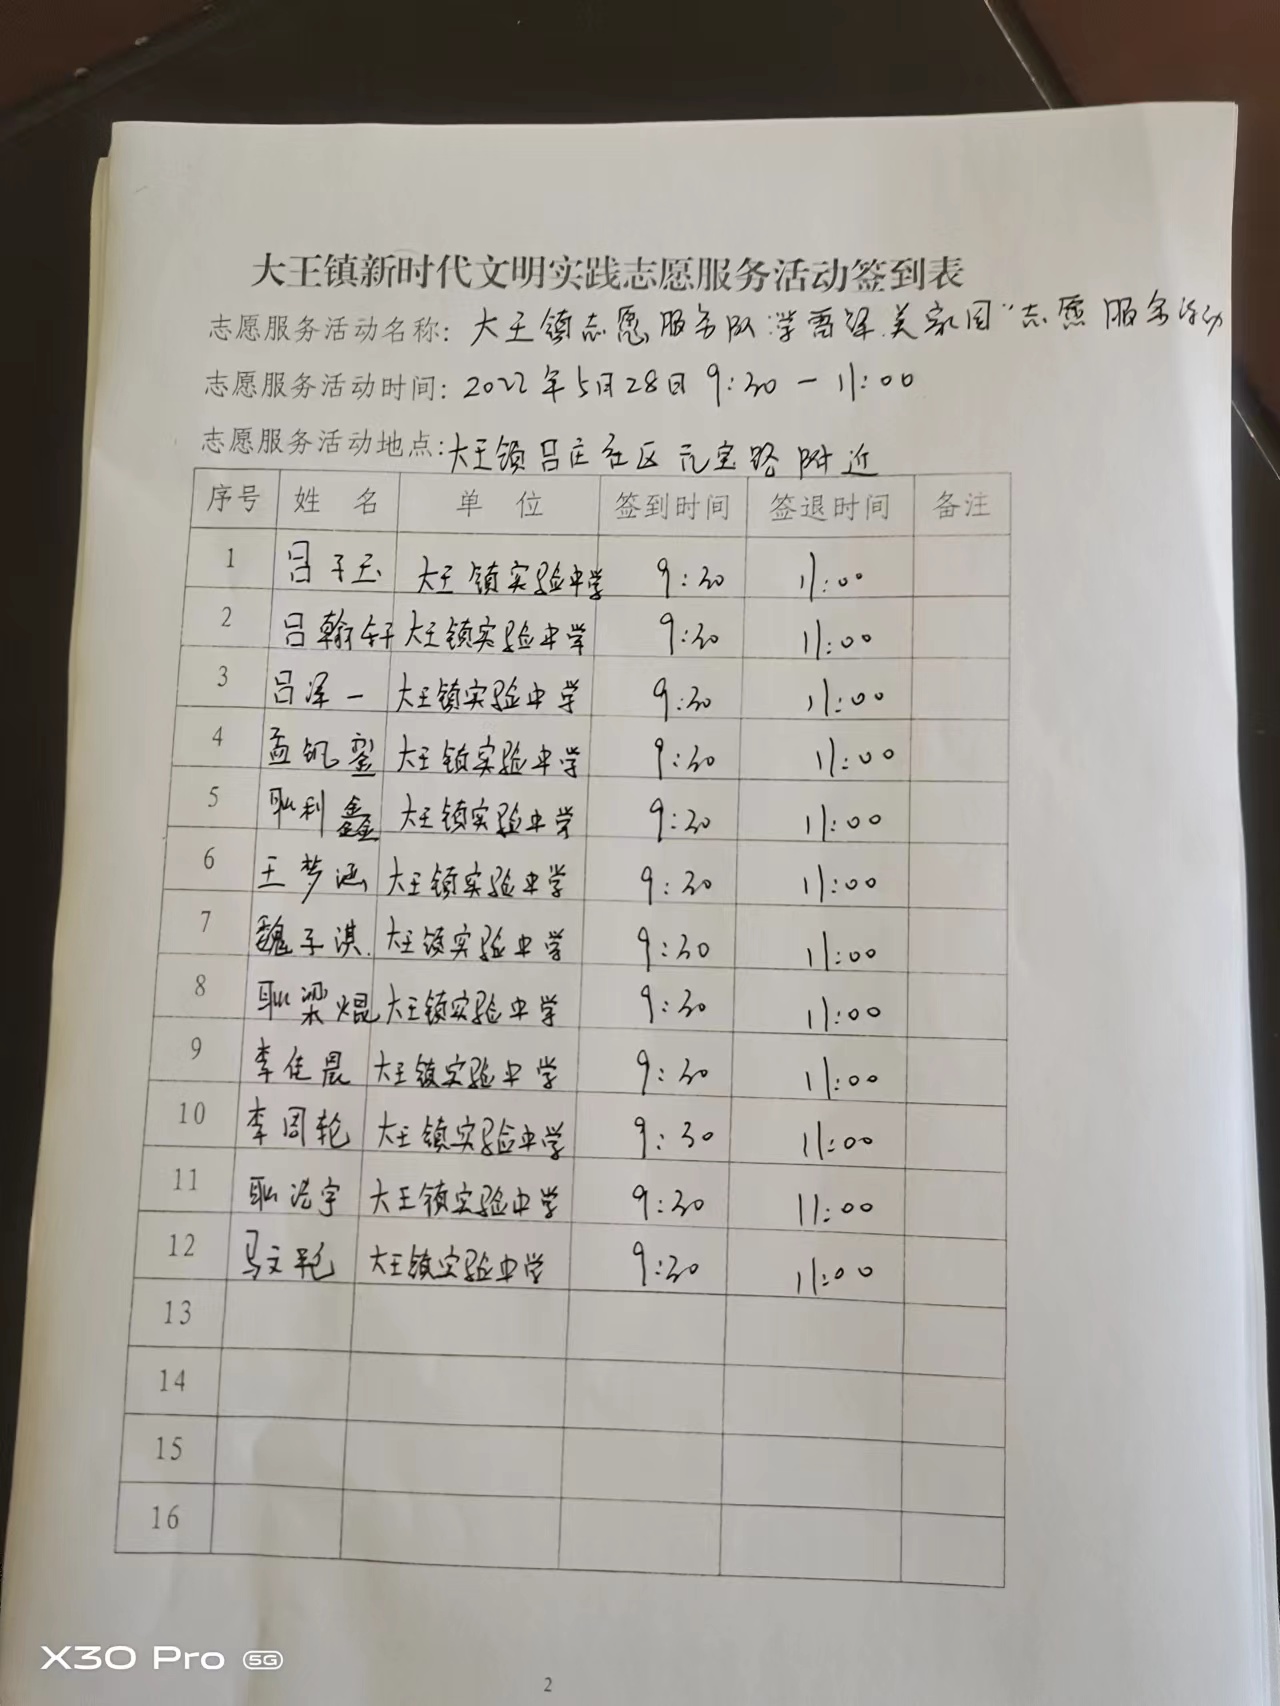 大王镇新时代文明实践志愿服务活动签到表
志愿服务活动名称: 大王镇志愿服务队"学雷锋 美家园"志愿服务活动
志愿服务活动时间: 2022年5月28日 9:30 — 11:00
志愿服务活动地点: 大王镇吕庄社区元宝路附近
序号 姓 名 单 位 签到时间 签退时间 备注
1 吕子玉 大王镇实验中学 9:30 11:00
2 吕翰轩 大王镇实验中学 9:30 11:00
3 吕泽一 大王镇实验中学 9:30 11:00
4 孟凯 大王镇实验中学 9:30 11:00
5 耿利鑫 大王镇实验中学 9:30 11:00
6 王梦涵 大王镇实验中学 9:30 11:00
7 魏子淇 大王镇实验中学 9:30 11:00
8 耿梁焜 大王镇实验中学 9:30 11:00
9 李佳晨 大王镇实验中学 9:30 11:00
10 李周轮 大王镇实验中学 9:30 11:00
11 耿浩宇 大王镇实验中学 9:30 11:00
12 马文 大王镇实验中学 9:30 11:00
13
14
15
16
X30 Pro 5G
2